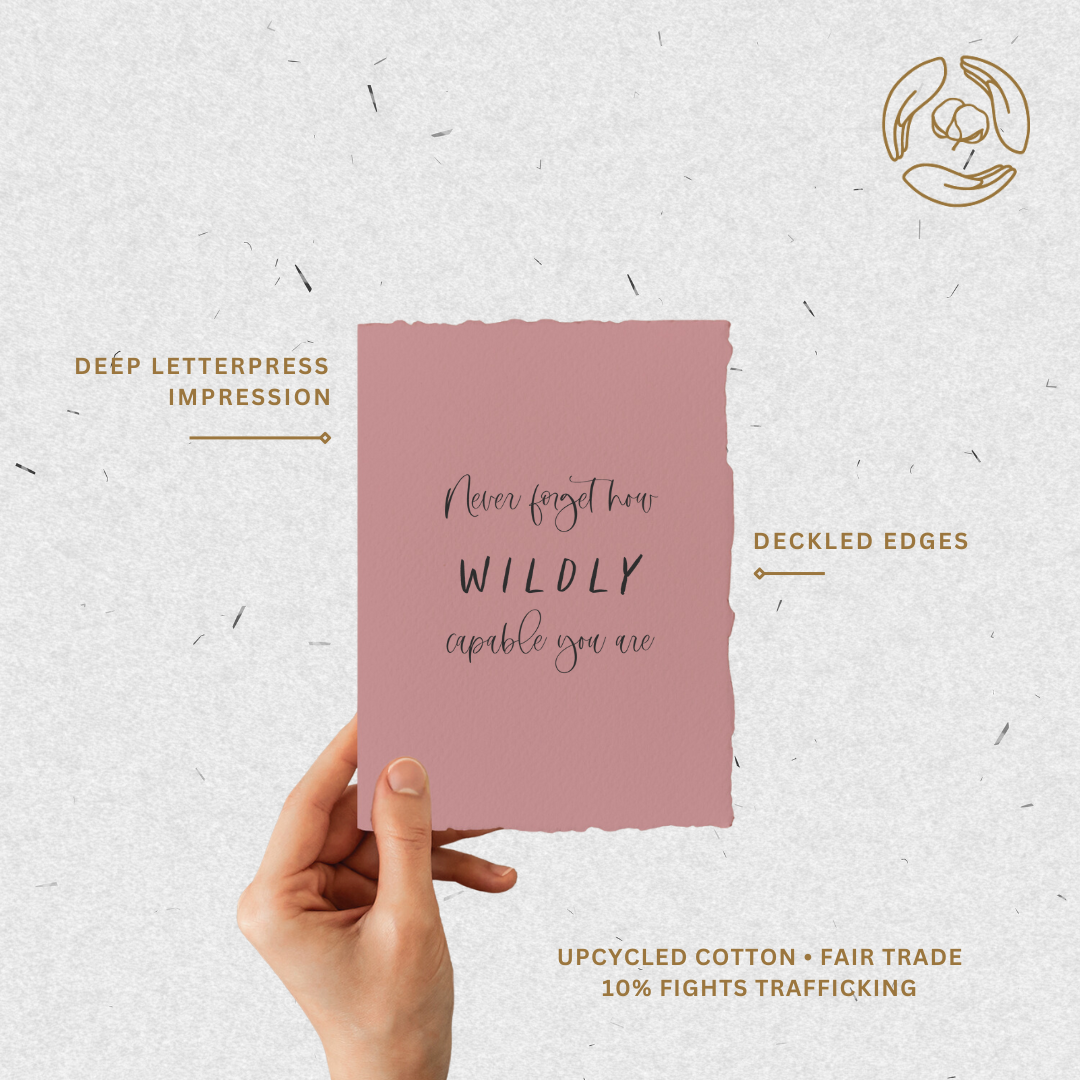 DEEP LETTERPRESS
IMPRESSION
Never forget how
WILDLY
capable you are
DECKLED EDGES
UPCYCLED COTTON • FAIR TRADE
10% FIGHTS TRAFFICKING